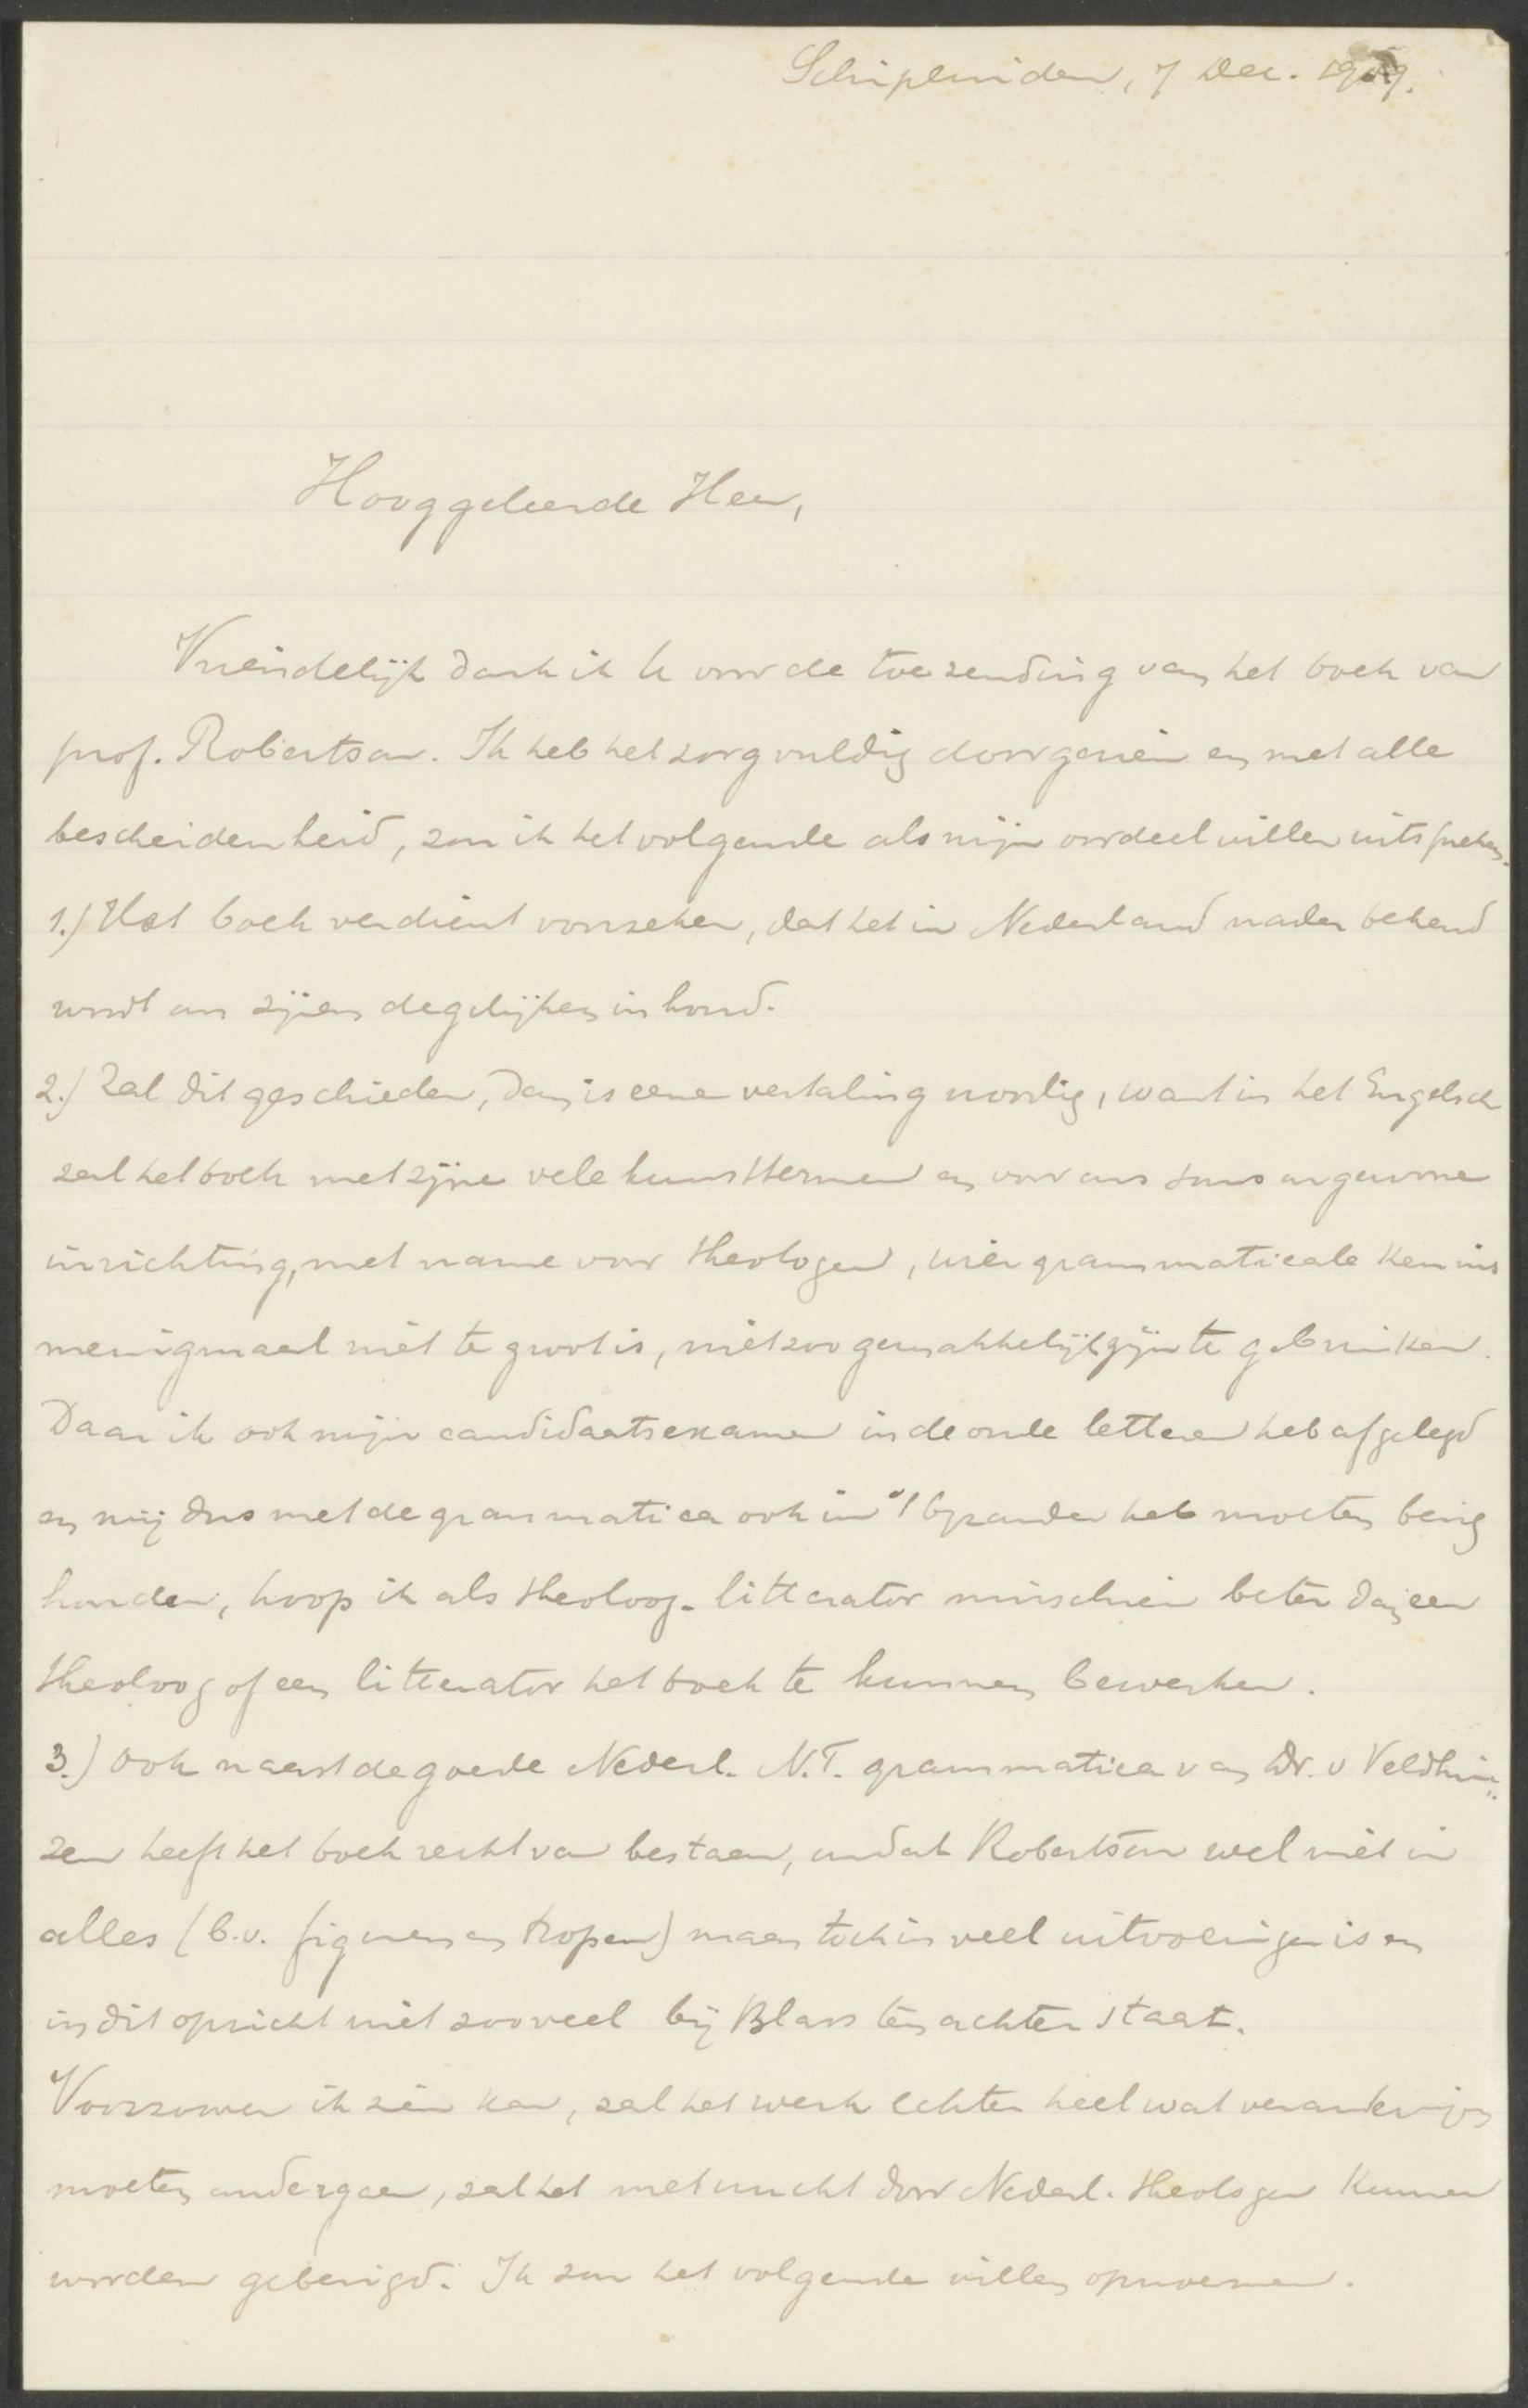 Schipluiden, 7 Dec. 1909.
Hooggeleerde Heer,
Vriendelijk dank ik U voor de toezending van het boek van
prof. Robertson. Ik heb het zorgvuldig doorgezien en met alle
bescheidenheid, zou ik het volgende als mijn oordeel willen uitspreken.
1.) Het boek verdient voorzeker, dat het in Nederland nader bekend
wordt om zijnen degelijken inhoud.
2.) Zal dit geschieden, dan is eene vertaling noodig, want in het Engelsch
zal het boek met zijne vele kunsttermen en voor ons soms ongewone
inrichting, met name voor theologen, wier grammaticale kennis
menigmaal niet te groot is, niet zoo gemakkelijk zijn te gebruiken.
Daar ik ook mijn candidaatsexamen in de oude letteren heb afgelegd
en mij dus met de grammatica ook in 't bijzonder heb moeten bezig
houden, hoop ik als theoloog-litterator misschien beter dan een
theoloog of een litterator het boek te kunnen bewerken.
3.) Ook naast de goede Nederl. N.T. grammatica van Dr. v Veldhui-
zen heeft het boek recht van bestaan, omdat Robertson wel niet in
alles (b.v. figuren en tropen) maar toch in veel uitvoeriger is en
in dit opzicht niet zooveel bij Blass ten achter staat.
Voorzoover ik zien kan, zal het werk echter heel wat veranderingen
moeten ondergaan, zal het met vrucht door Nederl. theologen kunnen
worden gebezigd. Ik zou het volgende willen opnoemen.